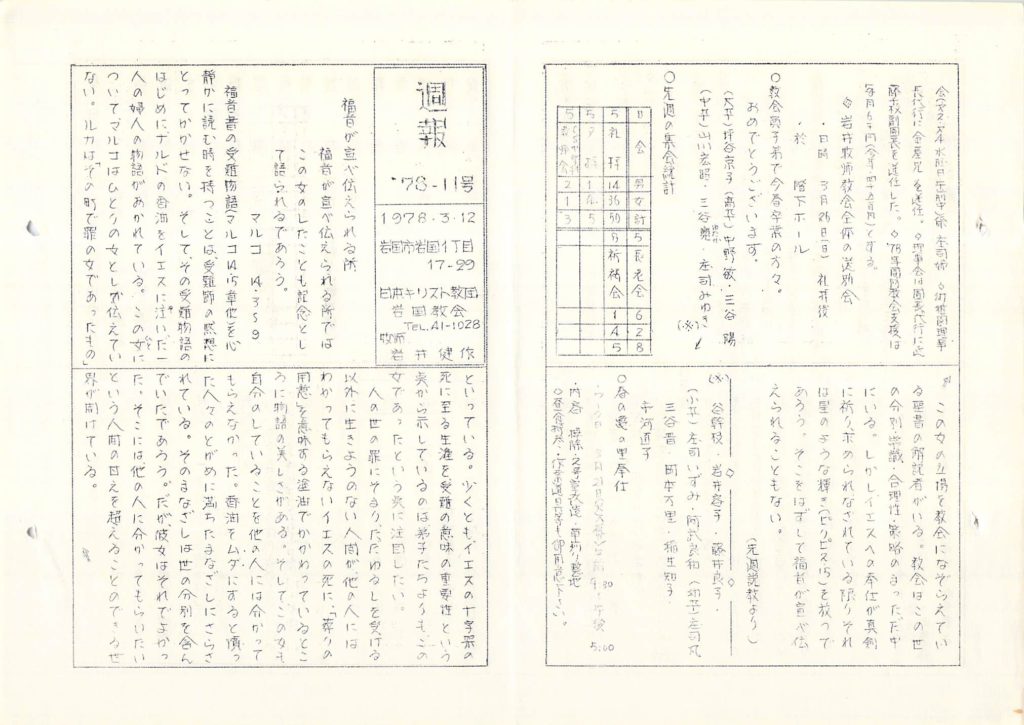 週報
'78-11号
1978.3.12
岩国市岩国1丁目
17-29
日本キリスト教団
岩国教会
TEL.41-1028
牧師
岩井健作
福音が宣べ伝えられる所
マルコ 14.3〜9
福音が宣べ伝えられる所では
この女のしたことも記念とし
て語られるであろう。
福音書の受難物語(マルコ14.15章他)を心
静かに読む時を持つことは受難節の黙想に
とってかかせない。そして、その受難物語の
はじめに、ナルドの香油をイエスに注いだ一
人の婦人の物語がおかれている。この女に
ついてマルコはひとりの女としか伝えてい
ない。ルカは「その町で罪の女であったもの」
といっている。少くとも、イエスの十字架の
死に至る生涯を受難の意味の重要性という
点から示しているのは弟子たちよりもこの
女であったという点に注目したい。
人の世の罪にそまり、ただゆるしを受ける
以外に生きようのない人間が、他の人には
わかってもらえないイエスの死に、「葬りの
用意」を意味する塗油でかかわっているとこ
ろに物語の美しさがある。そしてこの女も
自分のしていることを他の人には分かって
もらえなかった。香油をムダにすると憤っ
た人々のとがめに満ちたまなざしにさらさ
れている。そのまなざしは世の分別を含ん
でいたであろう。だが、彼女はそれでよかっ
た。そこには他の人に分かってもらいたい
という人間の甘えを超えることのできる世
界が開けている。
この女の立場を教会になぞらえてい
る聖書の解説者がいる。教会はこの世
の分別、常識、合理性、策略のまっただ中
にいる。しかし、イエスへの奉仕が真剣
に祈り求められなされている限りそれ
は星のような輝き(ピリピ2.15)を放つで
あろう。そこをはずして福音が宣べ伝
えられることもない。
(先週説教より)
毎月5千円(今年四十五百円)とする。
◇岩井牧師教会全体の送別会
・日時 3月26日(日) 礼拝後
・於 階下ホール
○教会員子弟で今春卒業の方々。
おめでとうございます。
(大卒)坪谷京子 (高卒)中野敏・三谷陽
(中卒)山川宏昭・三谷亮・庄司みゆき
(※)
○先週の集会統計
日 会 男 女 計
5 礼拝 14 36 50
5 長老会 6 2 8
祈祷会 1 4 5
(※)
谷幹枝・岩井容子・藤井良子・
(小卒)庄司いずみ・阿武良和 (幼卒)庄司丸
三谷晋・岡本万里・稲生知子・
寺河道子
○春の愛の里奉仕